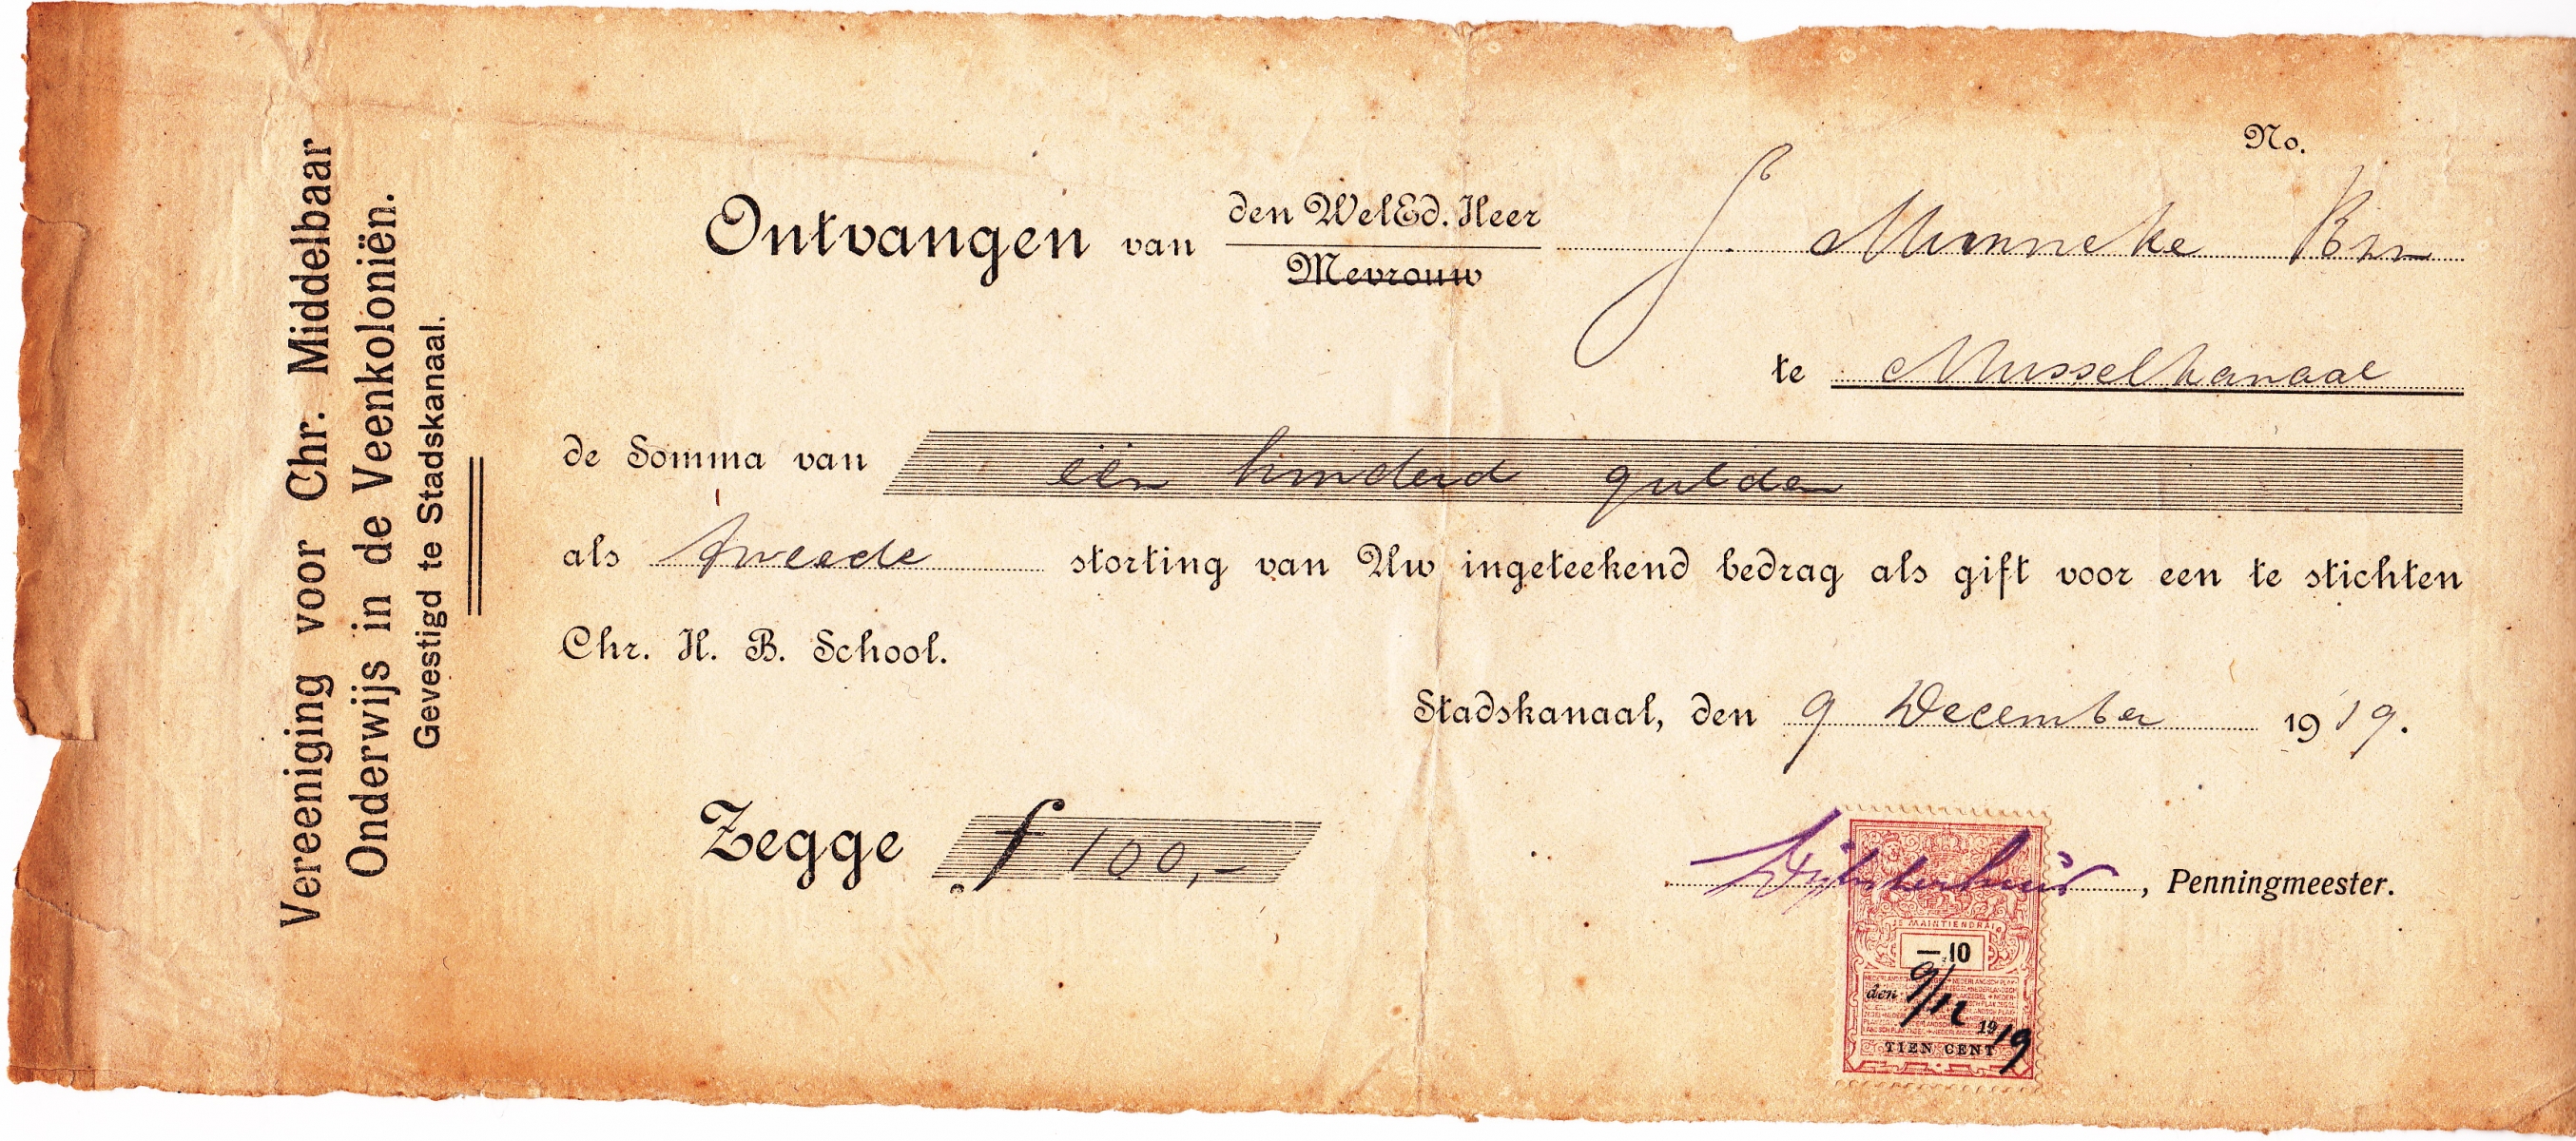 Vereeniging voor Chr. Middelbaar
Onderwijs in de Veenkoloniën.
Gevestigd te Stadskanaal.
No.
Ontvangen van den WelEd. Heer J. Munneke Bzn
Mevrouw
te Musselkanaal
de Somma van één honderd gulden
als tweede storting van Uw ingeteekend bedrag als gift voor een te stichten
Chr. H. B. School.
Stadskanaal, den 9 December 1919.
Zegge f 100,-
, Penningmeester.
JE MAINTIENDRAI
—,10
den 9/12 1919
TIEN CENT